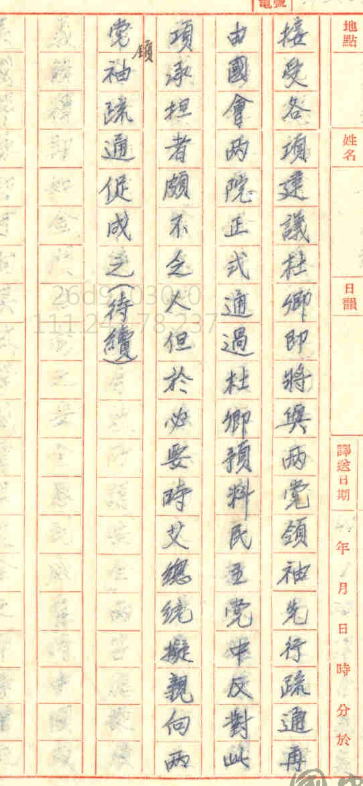 電號
地點
姓名
日韻
譯送日期
年月日時分於
接受各項建議杜卿即將與兩党領袖先行疏通再
由國會兩院正式通過杜卿預料民主党中反對此
項承担者頗不乏人但於必要時艾總統擬親向兩
党領袖疏通促成之(待續)